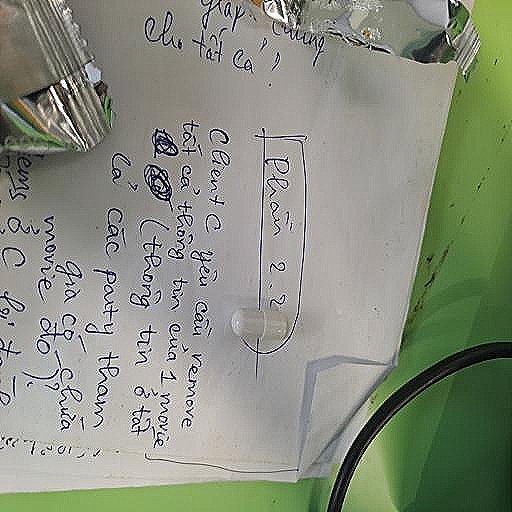 cho tất cả".
Phần 2.2
Client C yêu cầu remove
tất cả thông tin của 1 movie
(thông tin ở tất
cả các party tham
gia có chứa
movie đó).
ở C